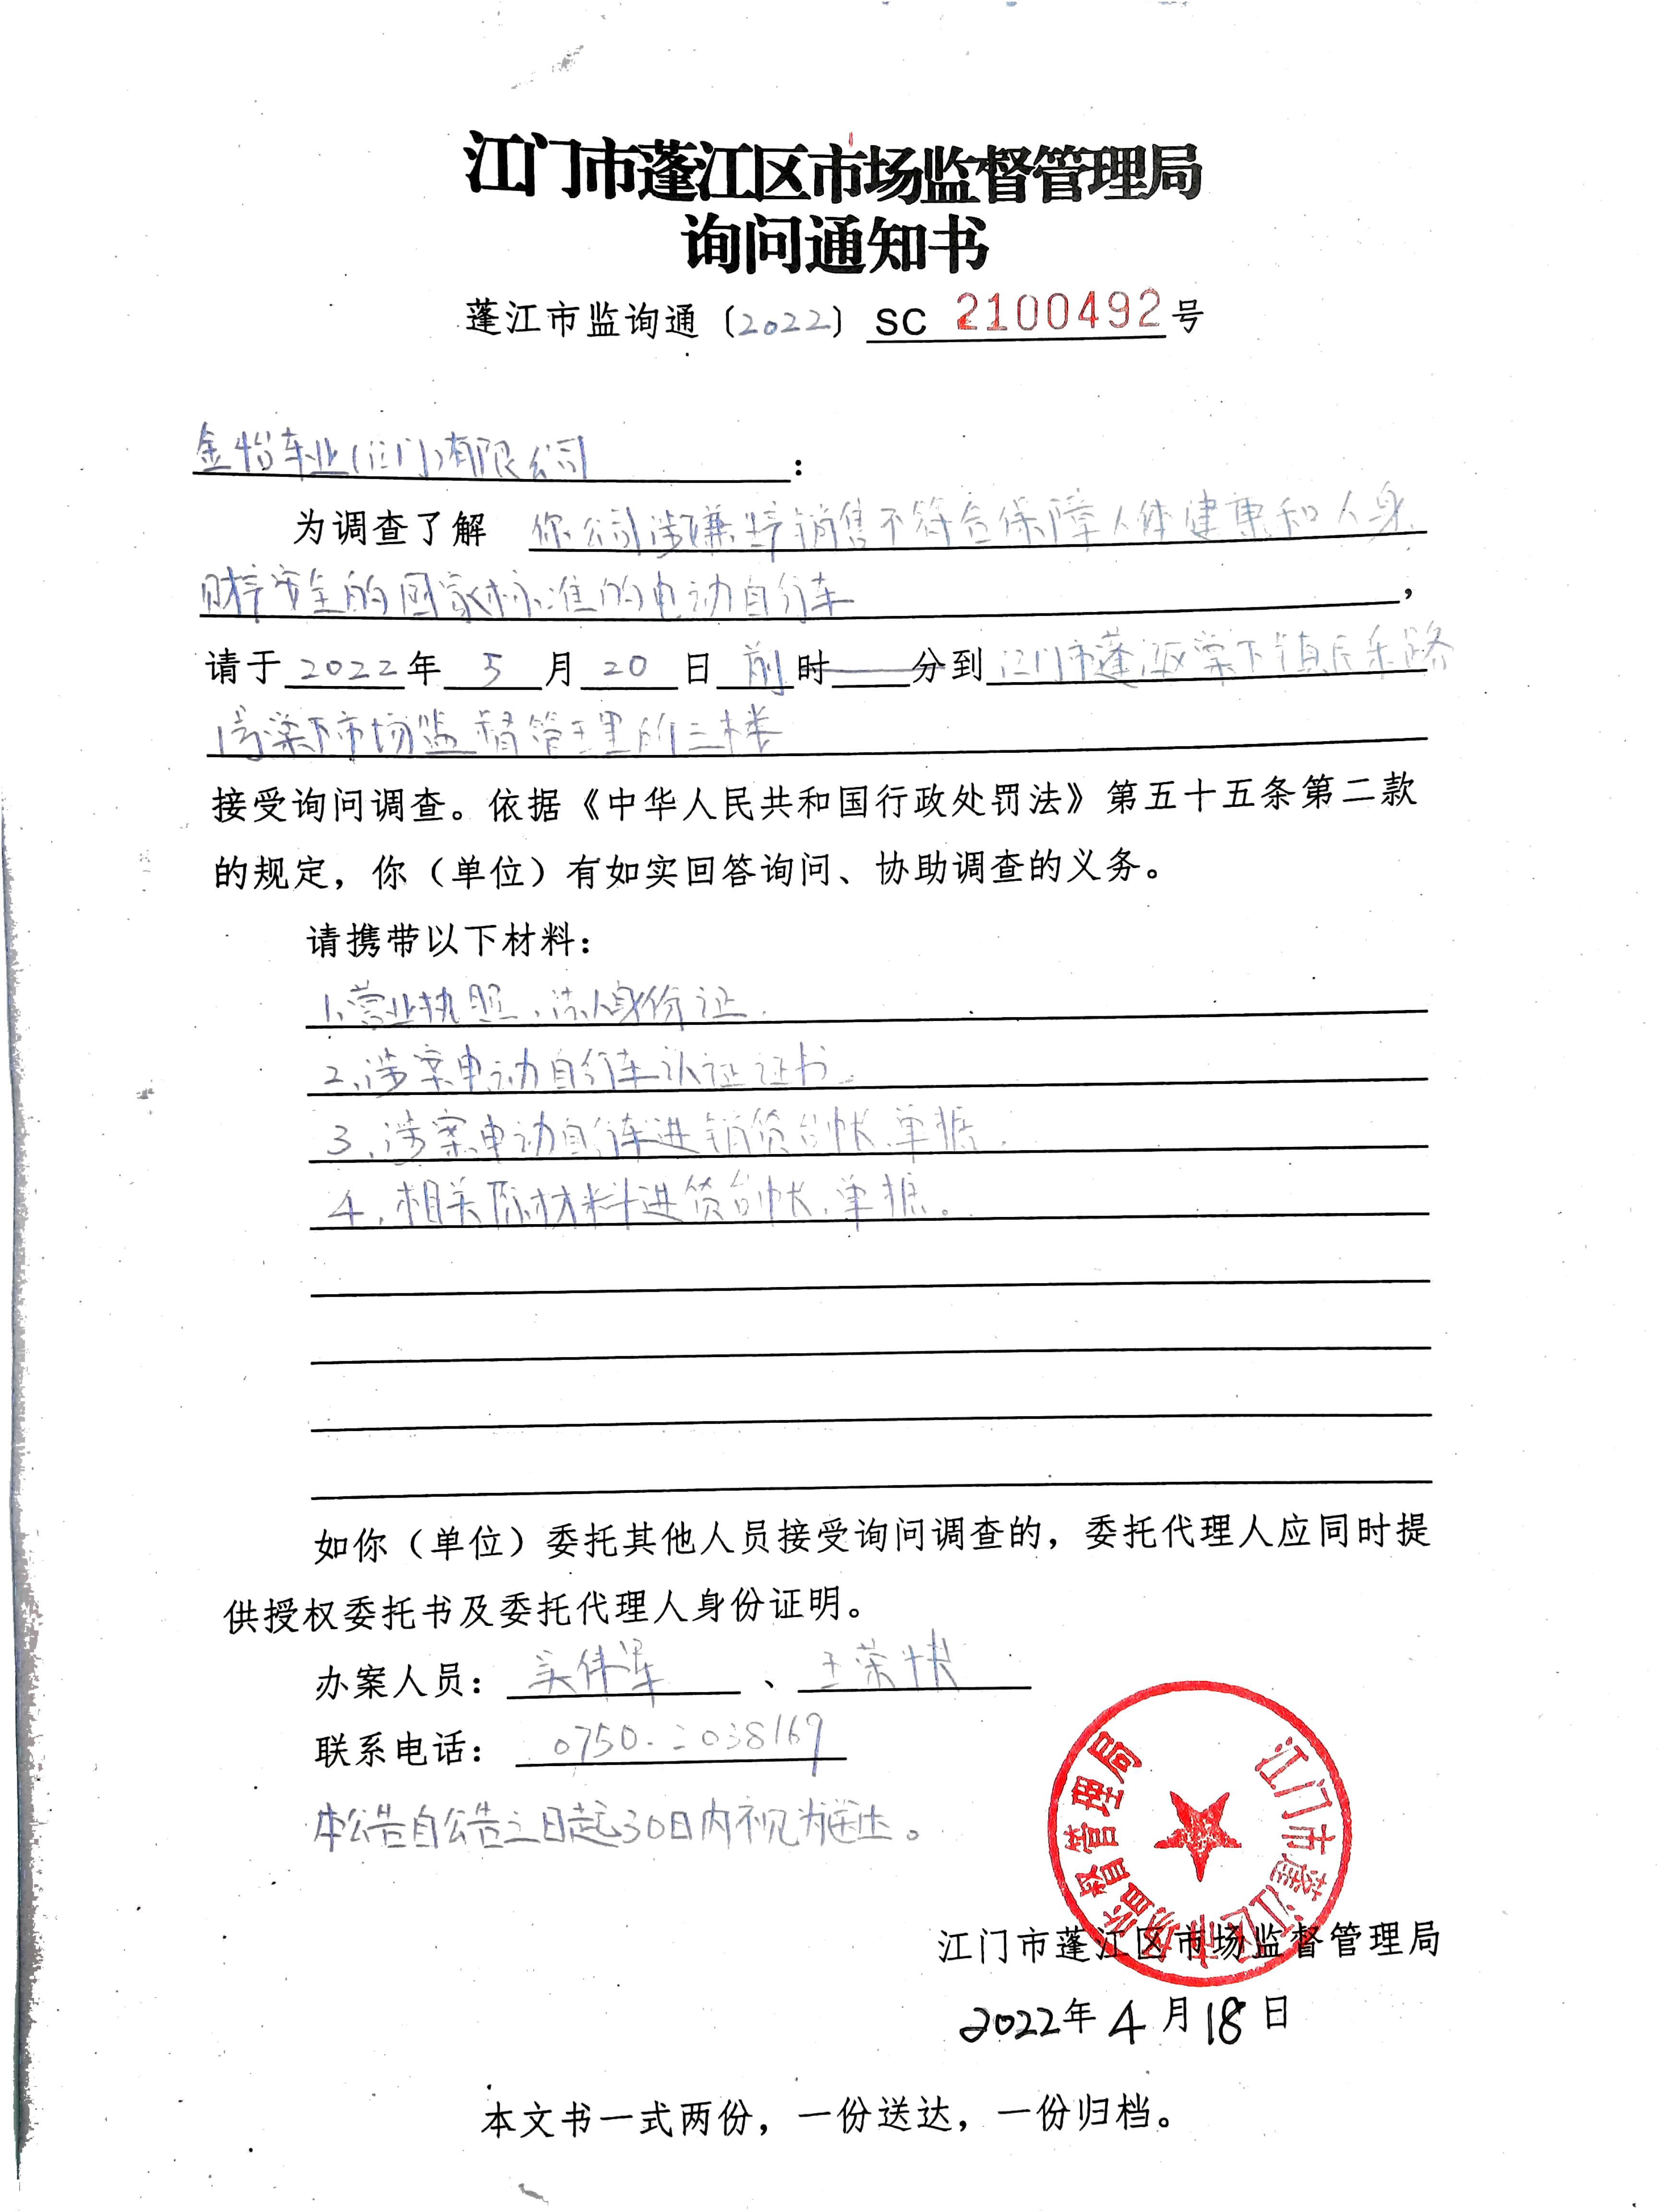 江门市蓬江区市场监督管理局
询问通知书
蓬江市监询通〔2022〕SC 2100492号
金怡车业(江门)有限公司:
为调查了解 你公司涉嫌销售不符合保障人体健康和人身
财产安全的国家标准的电动自行车,
请于2022年5月20日前时 分到江门市蓬江区棠下镇民乐路
1号棠下市场监督管理所三楼
接受询问调查。依据《中华人民共和国行政处罚法》第五十五条第二款
的规定,你(单位)有如实回答询问、协助调查的义务。
请携带以下材料:
1、营业执照、法人身份证.
2、涉案电动自行车认证证书.
3、涉案电动自行车进销货台帐、单据.
4、相关原材料进货台帐、单据。
如你(单位)委托其他人员接受询问调查的,委托代理人应同时提
供授权委托书及委托代理人身份证明。
办案人员: 、
联系电话:0750-2038169
本公告自公告之日起30日内视为送达。
江门市蓬江区市场监督管理局
江门市蓬江区市场监督管理局
2022年4月18日
本文书一式两份,一份送达,一份归档。